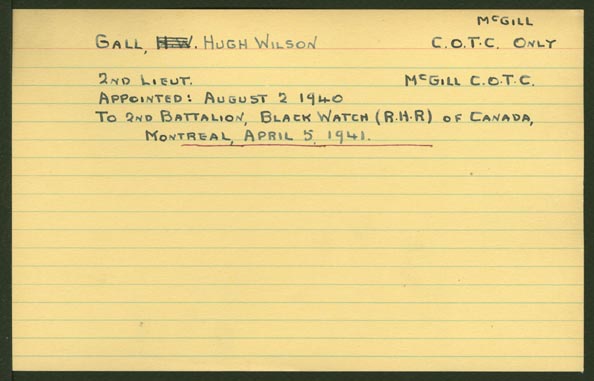 McGILL
GALL, H.W. HUGH WILSON C.O.T.C. ONLY
2ND LIEUT. McGILL C.O.T.C.
APPOINTED: AUGUST 2 1940
TO 2ND BATTALION, BLACK WATCH (R.H.R) OF CANADA,
MONTREAL, APRIL 5, 1941.